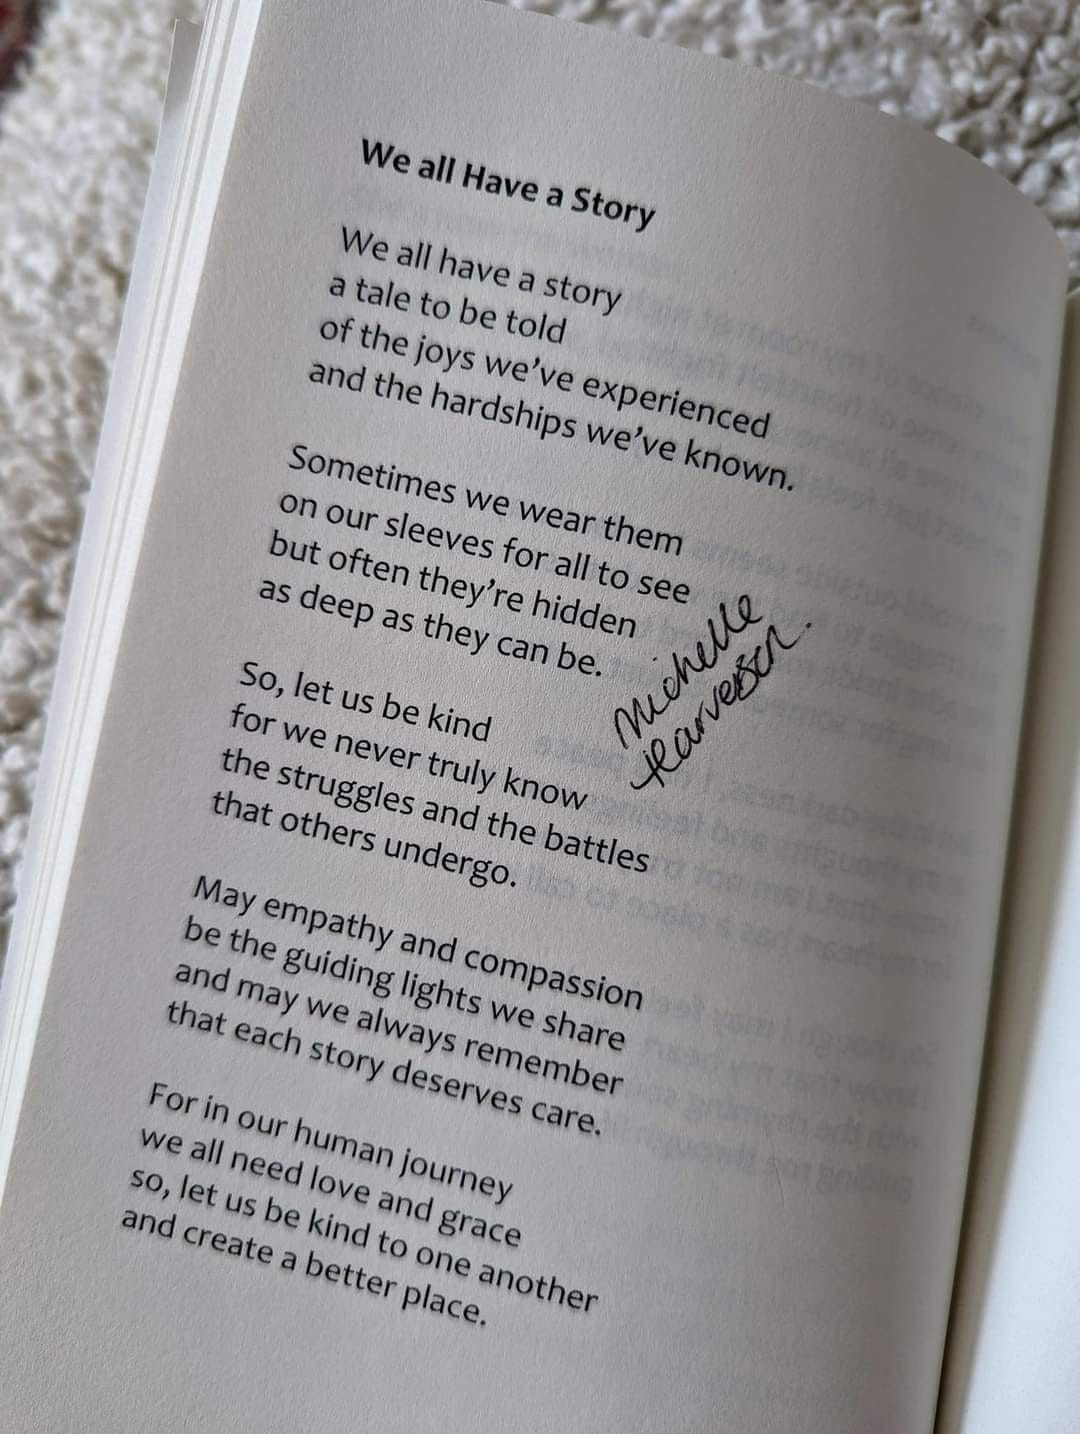 We all Have a Story
We all have a story
a tale to be told
of the joys we've experienced
and the hardships we've known.
Sometimes we wear them
on our sleeves for all to see
but often they're hidden
as deep as they can be.
Michelle
So, let us be kind
for we never truly know
the struggles and the battles
that others undergo.
May empathy and compassion
be the guiding lights we share
and may we always remember
that each story deserves care.
For in our human journey
we all need love and grace
so, let us be kind to one another
and create a better place.